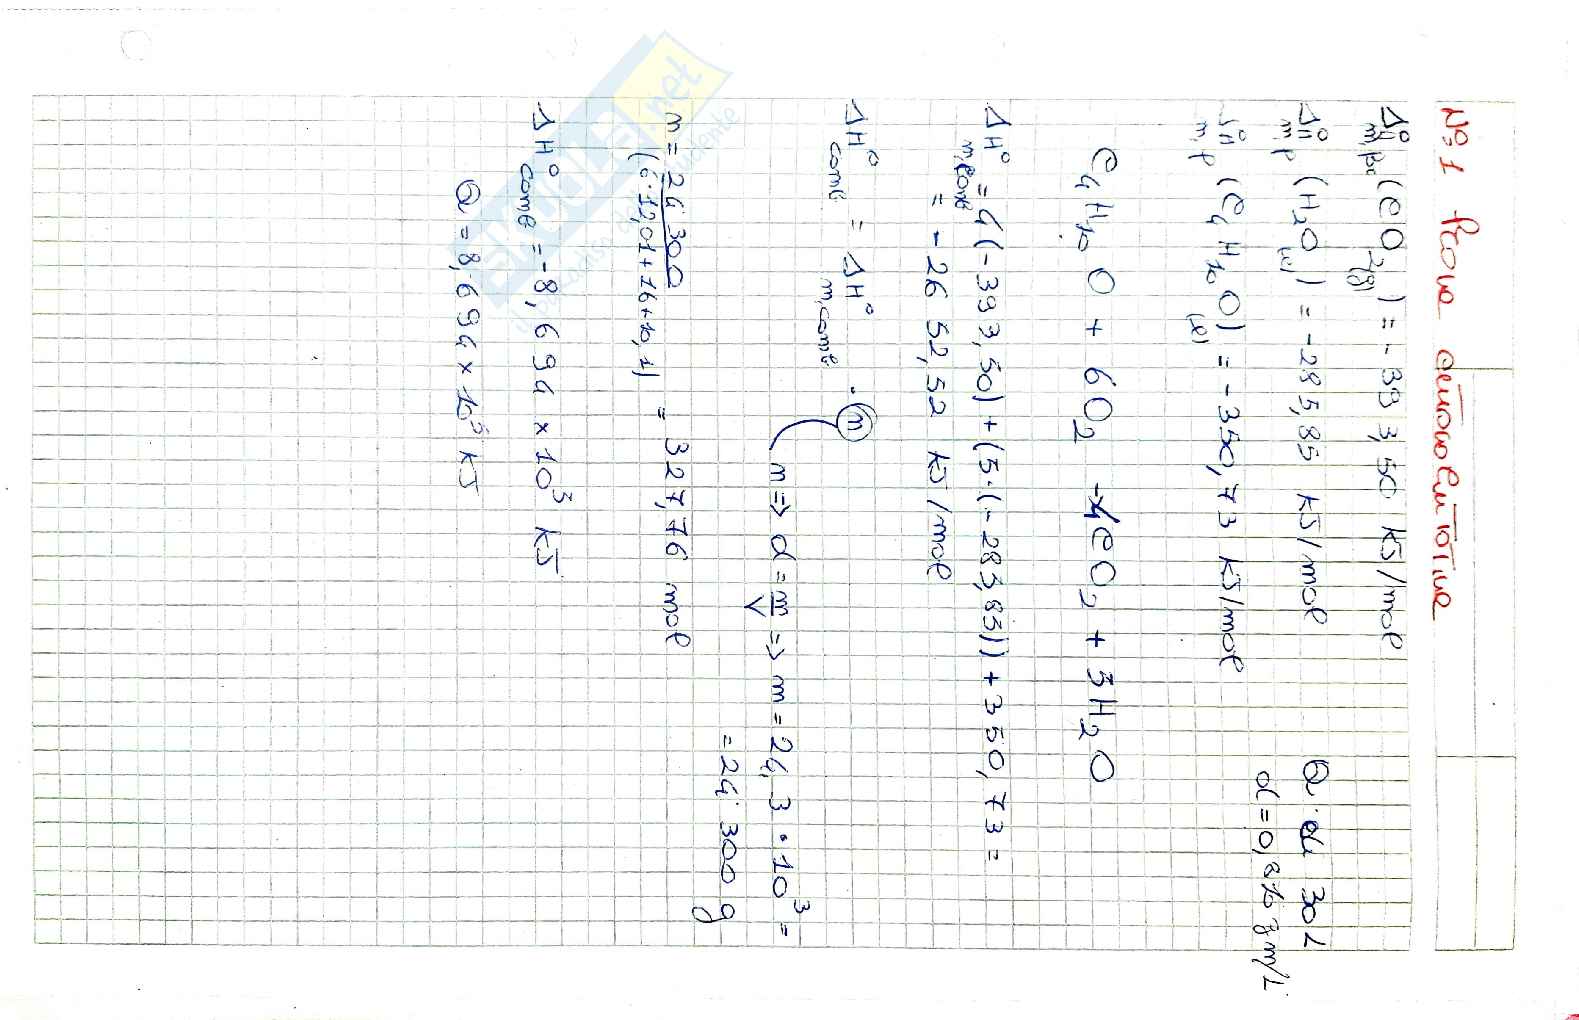 N°1 Prova
ΔH°m,f (CO2(g)) = -393,50 kJ/mol
ΔH°m,f (H2O(l)) = -285,85 kJ/mol
Q di 30 L
ΔH°m,f (C4H10O(l)) = -350,73 kJ/mol
d = 0,810 g m/L
C4H10O + 6O2 → 4CO2 + 5H2O
ΔH°m,comb = 4(-393,50) + (5·(-285,85)) + 350,73 =
= -2652,52 kJ/mol
ΔH°comb = ΔH°m,comb · n
m => d = m/V => m = 24,3 · 10^3 =
= 24 300 g
n = 24 300 / (4·12,01+16+10,1) = 327,76 mol
ΔH°comb = -8,694 × 10^3 kJ
Q = 8,694 × 10^5 kJ
SKUOLA.net